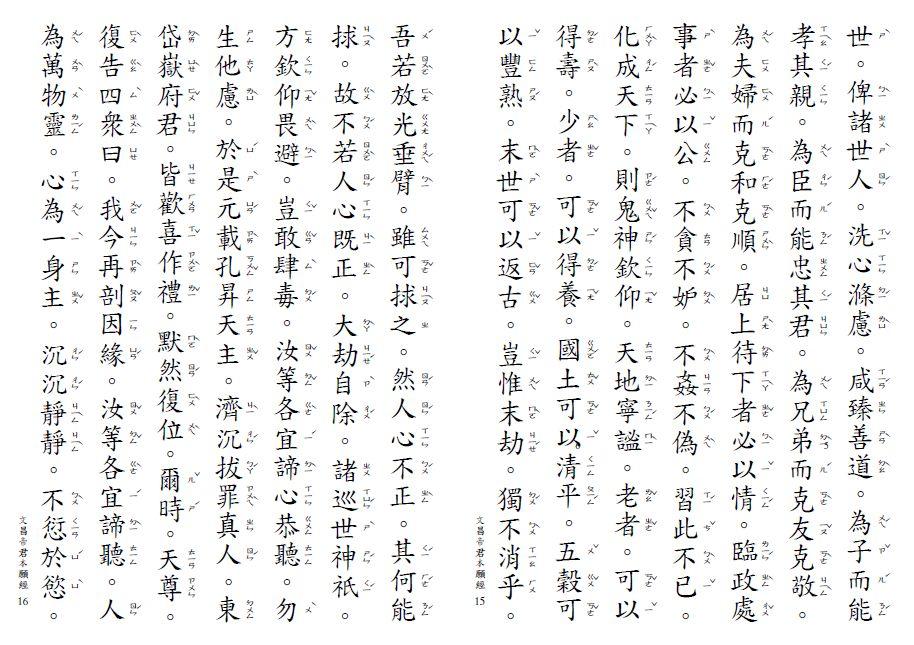 世。俾諸世人。洗心滌慮。咸臻善道。為子而能
孝其親。為臣而能忠其君。為兄弟而克友克敬。
為夫婦而克和克順。居上待下者必以情。臨政處
事者必以公。不貪不妒。不姦不偽。習此不已。
化成天下。則鬼神欽仰。天地寧謐。老者。可以
得壽。少者。可以得養。國土可以清平。五穀可
以豐熟。末世可以返古。豈惟末劫。獨不消乎。
文昌帝君本願經 15
吾若放光垂臂。雖可捄之。然人心不正。其何能
捄。故不若人心既正。大劫自除。諸巡世神祇。
方欽仰畏避。豈敢肆毒。汝等各宜諦心恭聽。勿
生他慮。於是元載孔昇天主。濟沉拔罪真人。東
岱嶽府君。皆歡喜作禮。默然復位。爾時。天尊
復告四眾曰。我今再剖因緣。汝等各宜諦聽。人
為萬物靈。心為一身主。沉沉靜靜。不愆於慾。
文昌帝君本願經 16